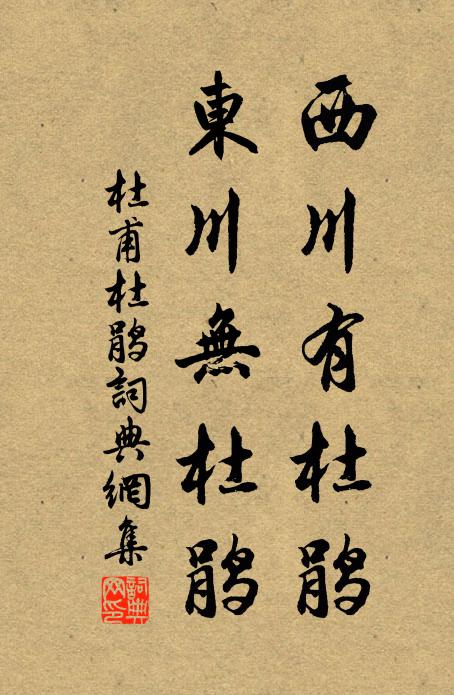 西川有杜鹃
東川無杜鹃
杜甫杜鹃詞典網集
詞典網印